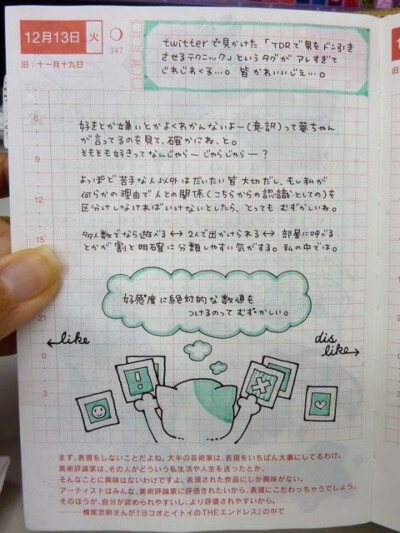 12月13日
火
347
旧：十一月十九日
twitterで見かけた「TDRで男をドン引き
させるテクニック」というタグがアレすぎて
じわじわくる…。皆かわいいじぇ…。
6
好きとか嫌いとかよくわかんないよー(意訳)って葵ちゃん
が言ってるのを見て、確かにね、と。
そもそも好きってなんじゃらーじゃらじゃらー？
9
よっぽど苦手な人以外はだいたい皆大切だし、もし私が
何らかの理由で人との関係(こちらからの認識としての)を
12
区分けしなければいけないとしたら、とってもむずかしいね。
15
多人数でなら遊べる↔2人で出かけられる↔部屋に呼べる
とかが割と明確に分類しやすい気がする。私の中では。
好感度に絶対的な数値を
つけるのってむずかしい。
←like
dis
like→
!
21
0
3
まず、表現をしないことだよね。大半の芸術家は、表現をいちばん大事にしてるわけ。
美術評論家は、その人がどういう私生活や人生を送ったとか、
そんなことに興味はないわけですよ。表現された作品にしか興味がない。
アーティストはみんな、美術評論家に評価されたいから、表現にこだわっちゃうでしょう。
そのほうが、自分が認められやすいし、より評価されやすいから。
──横尾忠則さんが『ヨコオとイトイのTHEエンドレス』の中で